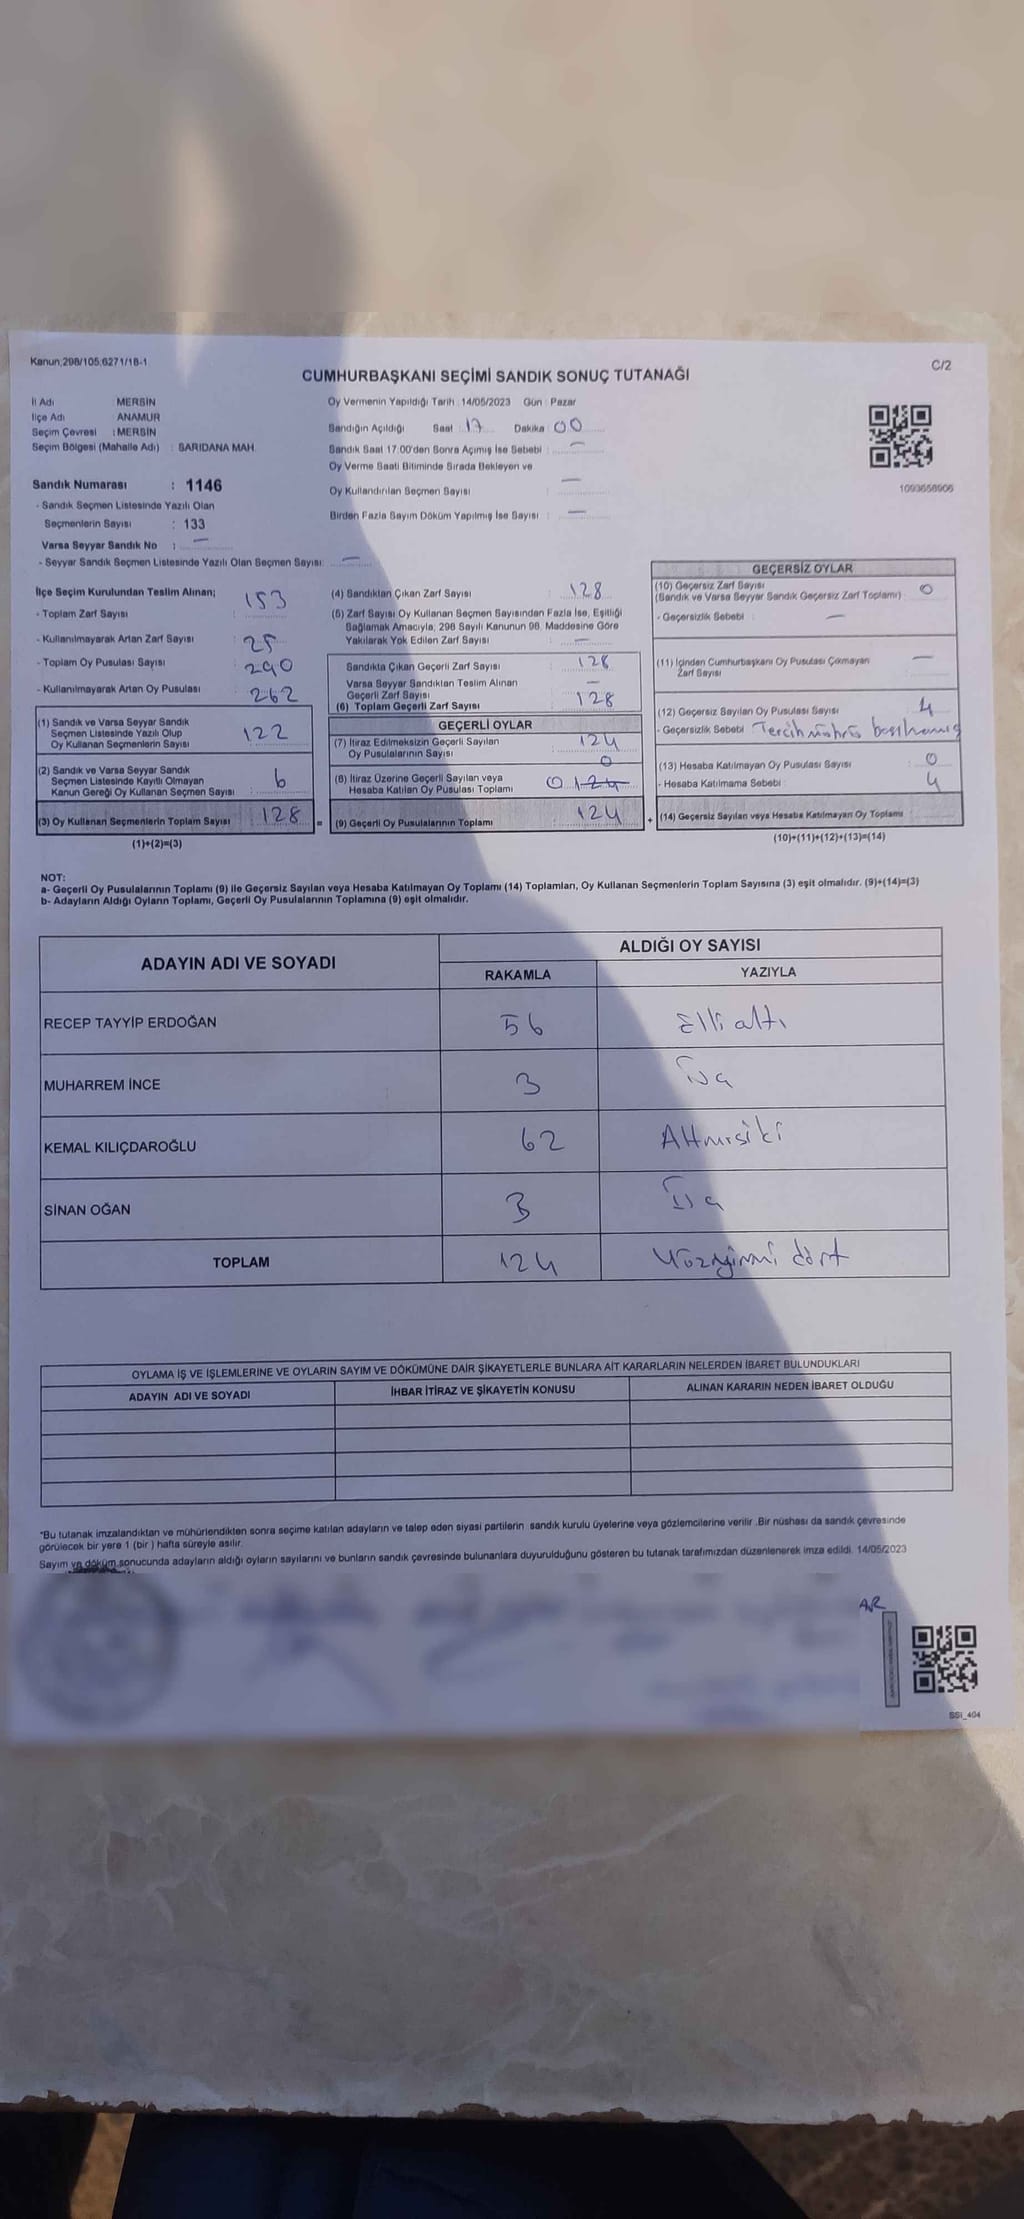 Kanun;298/105;6271/18-1
C/2
CUMHURBAŞKANI SEÇİMİ SANDIK SONUÇ TUTANAĞI
İl Adı MERSİN
İlçe Adı ANAMUR
Seçim Çevresi : MERSİN
Seçim Bölgesi (Mahalle Adı) : SARIDANA MAH.
Oy Vermenin Yapıldığı Tarih : 14/05/2023 Gün : Pazar
Sandığın Açıldığı Saat : 17 Dakika : 00
Sandık Saat 17:00'den Sonra Açımış İse Sebebi : —
Oy Verme Saati Bitiminde Sırada Bekleyen ve
Oy Kullandırılan Seçmen Sayısı : —
Birden Fazla Sayım Döküm Yapılmış İse Sayısı : —
1093658906
Sandık Numarası : 1146
- Sandık Seçmen Listesinde Yazılı Olan
Seçmenlerin Sayısı : 133
Varsa Seyyar Sandık No : —
- Seyyar Sandık Seçmen Listesinde Yazılı Olan Seçmen Sayısı: —
İlçe Seçim Kurulundan Teslim Alınan;
- Toplam Zarf Sayısı : 153
- Kullanılmayarak Artan Zarf Sayısı : 25
- Toplam Oy Pusulası Sayısı : 290
- Kullanılmayarak Artan Oy Pusulası : 262
(1) Sandık ve Varsa Seyyar Sandık
Seçmen Listesinde Yazılı Olup
Oy Kullanan Seçmenlerin Sayısı : 122
(2) Sandık ve Varsa Seyyar Sandık
Seçmen Listesinde Kayıtlı Olmayan
Kanun Gereği Oy Kullanan Seçmen Sayısı : 6
(3) Oy Kullanan Seçmenlerin Toplam Sayısı : 128 =
(1)+(2)=(3)
(4) Sandıktan Çıkan Zarf Sayısı : 128
(5) Zarf Sayısı Oy Kullanan Seçmen Sayısından Fazla İse, Eşitliği
Sağlamak Amacıyla; 298 Sayılı Kanunun 98. Maddesine Göre
Yakılarak Yok Edilen Zarf Sayısı : —
Sandıkta Çıkan Geçerli Zarf Sayısı : 128
Varsa Seyyar Sandıktan Teslim Alınan
Geçerli Zarf Sayısı : —
(6) Toplam Geçerli Zarf Sayısı : 128
GEÇERLİ OYLAR
(7) İtiraz Edilmeksizin Geçerli Sayılan
Oy Pusulalarının Sayısı : 124
0
(8) İtiraz Üzerine Geçerli Sayılan veya
Hesaba Katılan Oy Pusulası Toplamı 0 124
(9) Geçerli Oy Pusulalarının Toplamı 124 +
GEÇERSİZ OYLAR
(10) Geçersiz Zarf Sayısı
(Sandık ve Varsa Seyyar Sandık Geçersiz Zarf Toplamı) : 0
- Geçersizlik Sebebi : —
(11) İçinden Cumhurbaşkanı Oy Pusulası Çıkmayan
Zarf Sayısı : —
(12) Geçersiz Sayılan Oy Pusulası Sayısı : 4
- Geçersizlik Sebebi : Tercih mührü basılmamış
(13) Hesaba Katılmayan Oy Pusulası Sayısı : 0
- Hesaba Katılmama Sebebi : 4
(14) Geçersiz Sayılan veya Hesaba Katılmayan Oy Toplamı
(10)+(11)+(12)+(13)=(14)
NOT:
a- Geçerli Oy Pusulalarının Toplamı (9) ile Geçersiz Sayılan veya Hesaba Katılmayan Oy Toplamı (14) Toplamları, Oy Kullanan Seçmenlerin Toplam Sayısına (3) eşit olmalıdır. (9)+(14)=(3)
b- Adayların Aldığı Oyların Toplamı, Geçerli Oy Pusulalarının Toplamına (9) eşit olmalıdır.
ADAYIN ADI VE SOYADI ALDIĞI OY SAYISI
RAKAMLA YAZIYLA
RECEP TAYYİP ERDOĞAN 56 Elli altı
MUHARREM İNCE 3 Üç
KEMAL KILIÇDAROĞLU 62 Altmışiki
SİNAN OĞAN 3 Üç
TOPLAM 124 Yüzyirmi dört
OYLAMA İŞ VE İŞLEMLERİNE VE OYLARIN SAYIM VE DÖKÜMÜNE DAİR ŞİKAYETLERLE BUNLARA AİT KARARLARIN NELERDEN İBARET BULUNDUKLARI
ADAYIN ADI VE SOYADI İHBAR İTİRAZ VE ŞİKAYETİN KONUSU ALINAN KARARIN NEDEN İBARET OLDUĞU
*Bu tutanak imzalandıktan ve mühürlendikten sonra seçime katılan adayların ve talep eden siyasi partilerin sandık kurulu üyelerine veya gözlemcilerine verilir .Bir nüshası da sandık çevresinde
görülecek bir yere 1 (bir ) hafta süreyle asılır.
Sayım ve döküm sonucunda adayların aldığı oyların sayılarını ve bunların sandık çevresinde bulunanlara duyurulduğunu gösteren bu tutanak tarafımızdan düzenlenerek imza edildi. 14/05/2023
SSİ_404